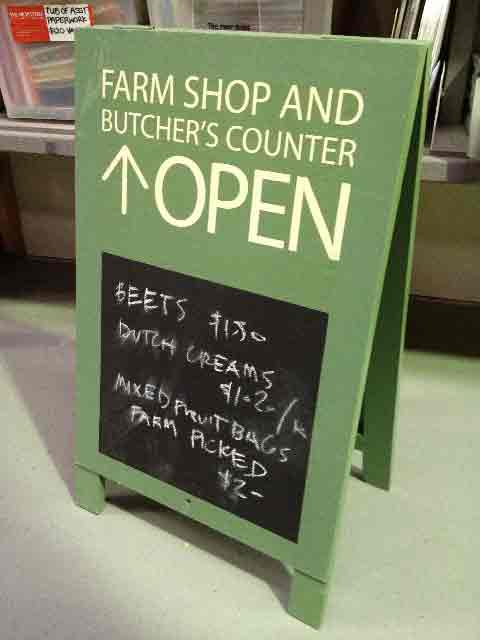 TUB OF ASST
PAPERWORK
FARM SHOP AND
BUTCHER'S COUNTER
OPEN
BEETS $1.50
DUTCH CREAMS
MIXED FRUIT BAGS
FARM PICKED
$2-